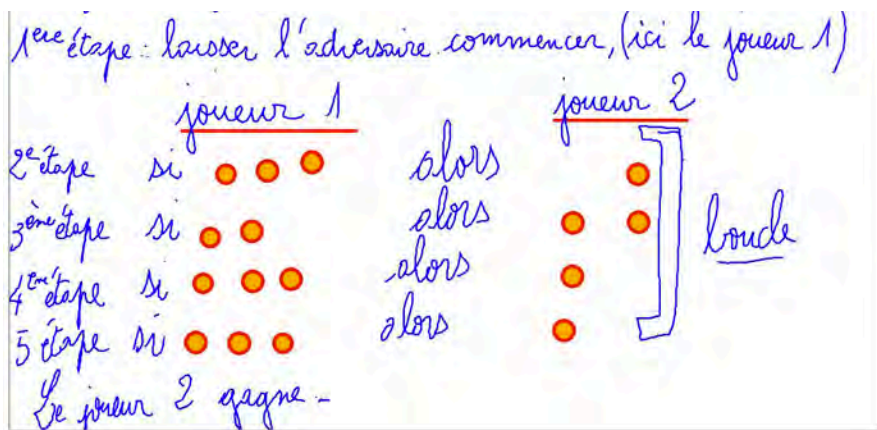 1ere étape : laisser l'adversaire commencer, (ici le joueur 1)
joueur 1 joueur 2
2e étape si alors
3ème étape si alors
boucle
4ème étape si alors
5 étape si alors
Le joueur 2 gagne -